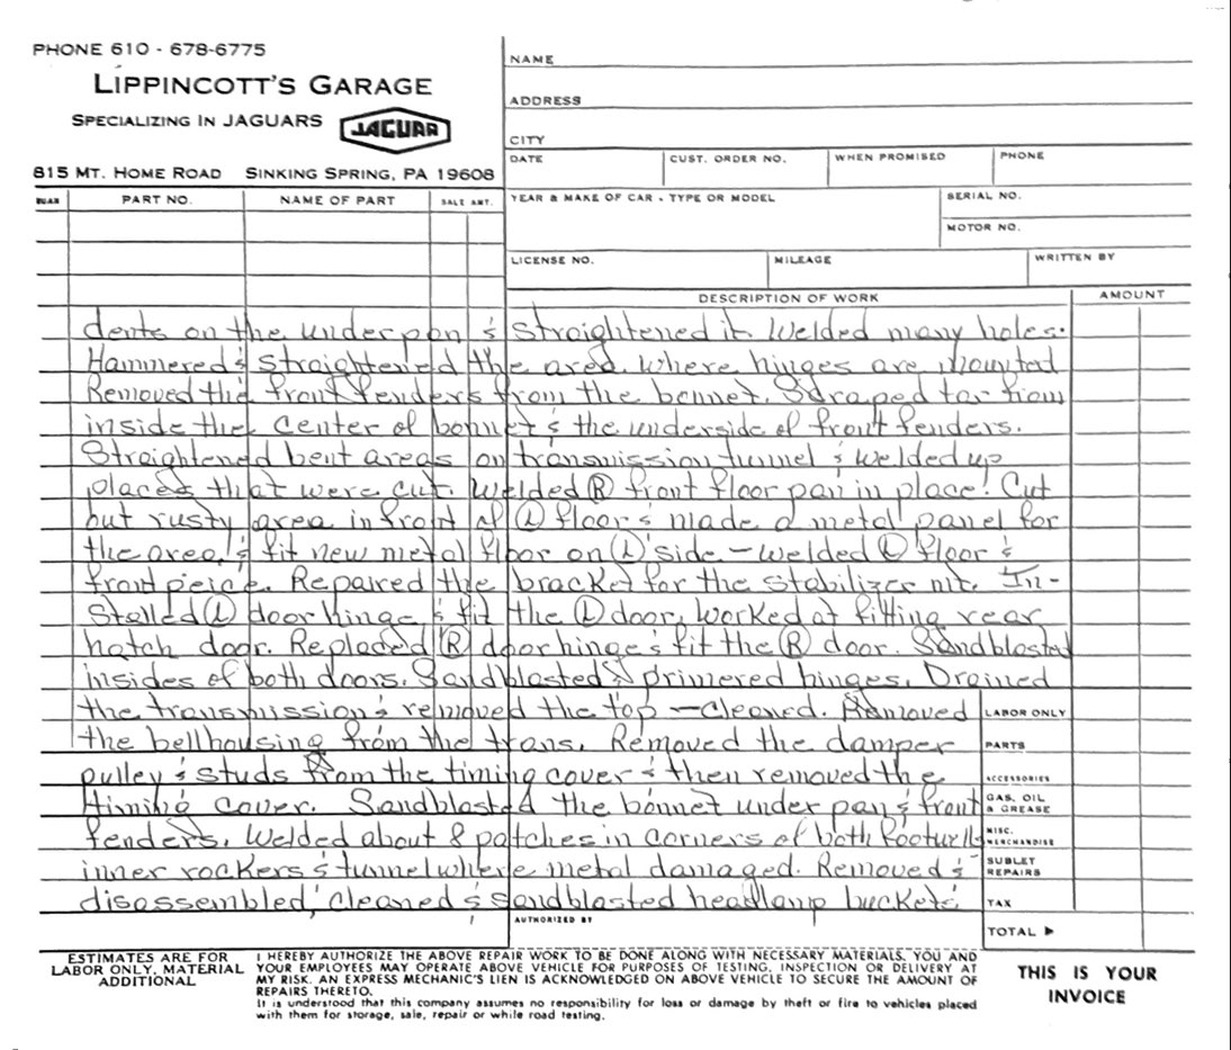 PHONE 610 - 678-6775
LIPPINCOTT'S GARAGE
SPECIALIZING IN JAGUARS
JAGUAR
815 MT. HOME ROAD SINKING SPRING, PA 19608
NAME
ADDRESS
CITY
DATE CUST. ORDER NO. WHEN PROMISED PHONE
QUAN PART NO. NAME OF PART SALE AMT.
YEAR & MAKE OF CAR - TYPE OR MODEL SERIAL NO.
MOTOR NO.
LICENSE NO. MILEAGE WRITTEN BY
DESCRIPTION OF WORK AMOUNT
dents on the underpan & straightened it. Welded many holes.
Hammered & straightened the area where hinges are mounted
Removed the front fenders from the bonnet. Scraped tar from
inside the center of bonnet & the underside of front fenders.
Straightened bent areas on transmission tunnel & welded up
places that were cut. Welded Ⓡ front floor pan in place. Cut
out rusty area in front of Ⓛ floor & made a metal panel for
the area, & fit new metal floor on Ⓛ side - welded Ⓛ floor &
front peice. Repaired the bracket for the stabilizer mt. In-
stalled Ⓛ door hinge & fit the Ⓛ door. Worked at fitting rear
hatch door. Replaced Ⓡ door hinge & fit the Ⓡ door. Sandblasted
insides of both doors. Sandblasted & primered hinges. Drained
the transmission & removed the top - cleaned. Removed
the bellhousing from the trans. Removed the damper
pulley & studs from the timing cover & then removed the
timing cover. Sandblasted the bonnet under pan & front
fenders. Welded about 8 patches in corners of both footwells
inner rockers & tunnel where metal damaged. Removed &
disassembled, cleaned & sandblasted headlamp buckets
LABOR ONLY
PARTS
ACCESSORIES
GAS, OIL & GREASE
MISC. MERCHANDISE
SUBLET REPAIRS
TAX
AUTHORIZED BY
TOTAL ►
ESTIMATES ARE FOR
LABOR ONLY, MATERIAL
ADDITIONAL
I HEREBY AUTHORIZE THE ABOVE REPAIR WORK TO BE DONE ALONG WITH NECESSARY MATERIALS. YOU AND
YOUR EMPLOYEES MAY OPERATE ABOVE VEHICLE FOR PURPOSES OF TESTING, INSPECTION OR DELIVERY AT
MY RISK. AN EXPRESS MECHANIC'S LIEN IS ACKNOWLEDGED ON ABOVE VEHICLE TO SECURE THE AMOUNT OF
REPAIRS THERETO.
It is understood that this company assumes no responsibility for loss or damage by theft or fire to vehicles placed
with them for storage, sale, repair or while road testing.
THIS IS YOUR
INVOICE